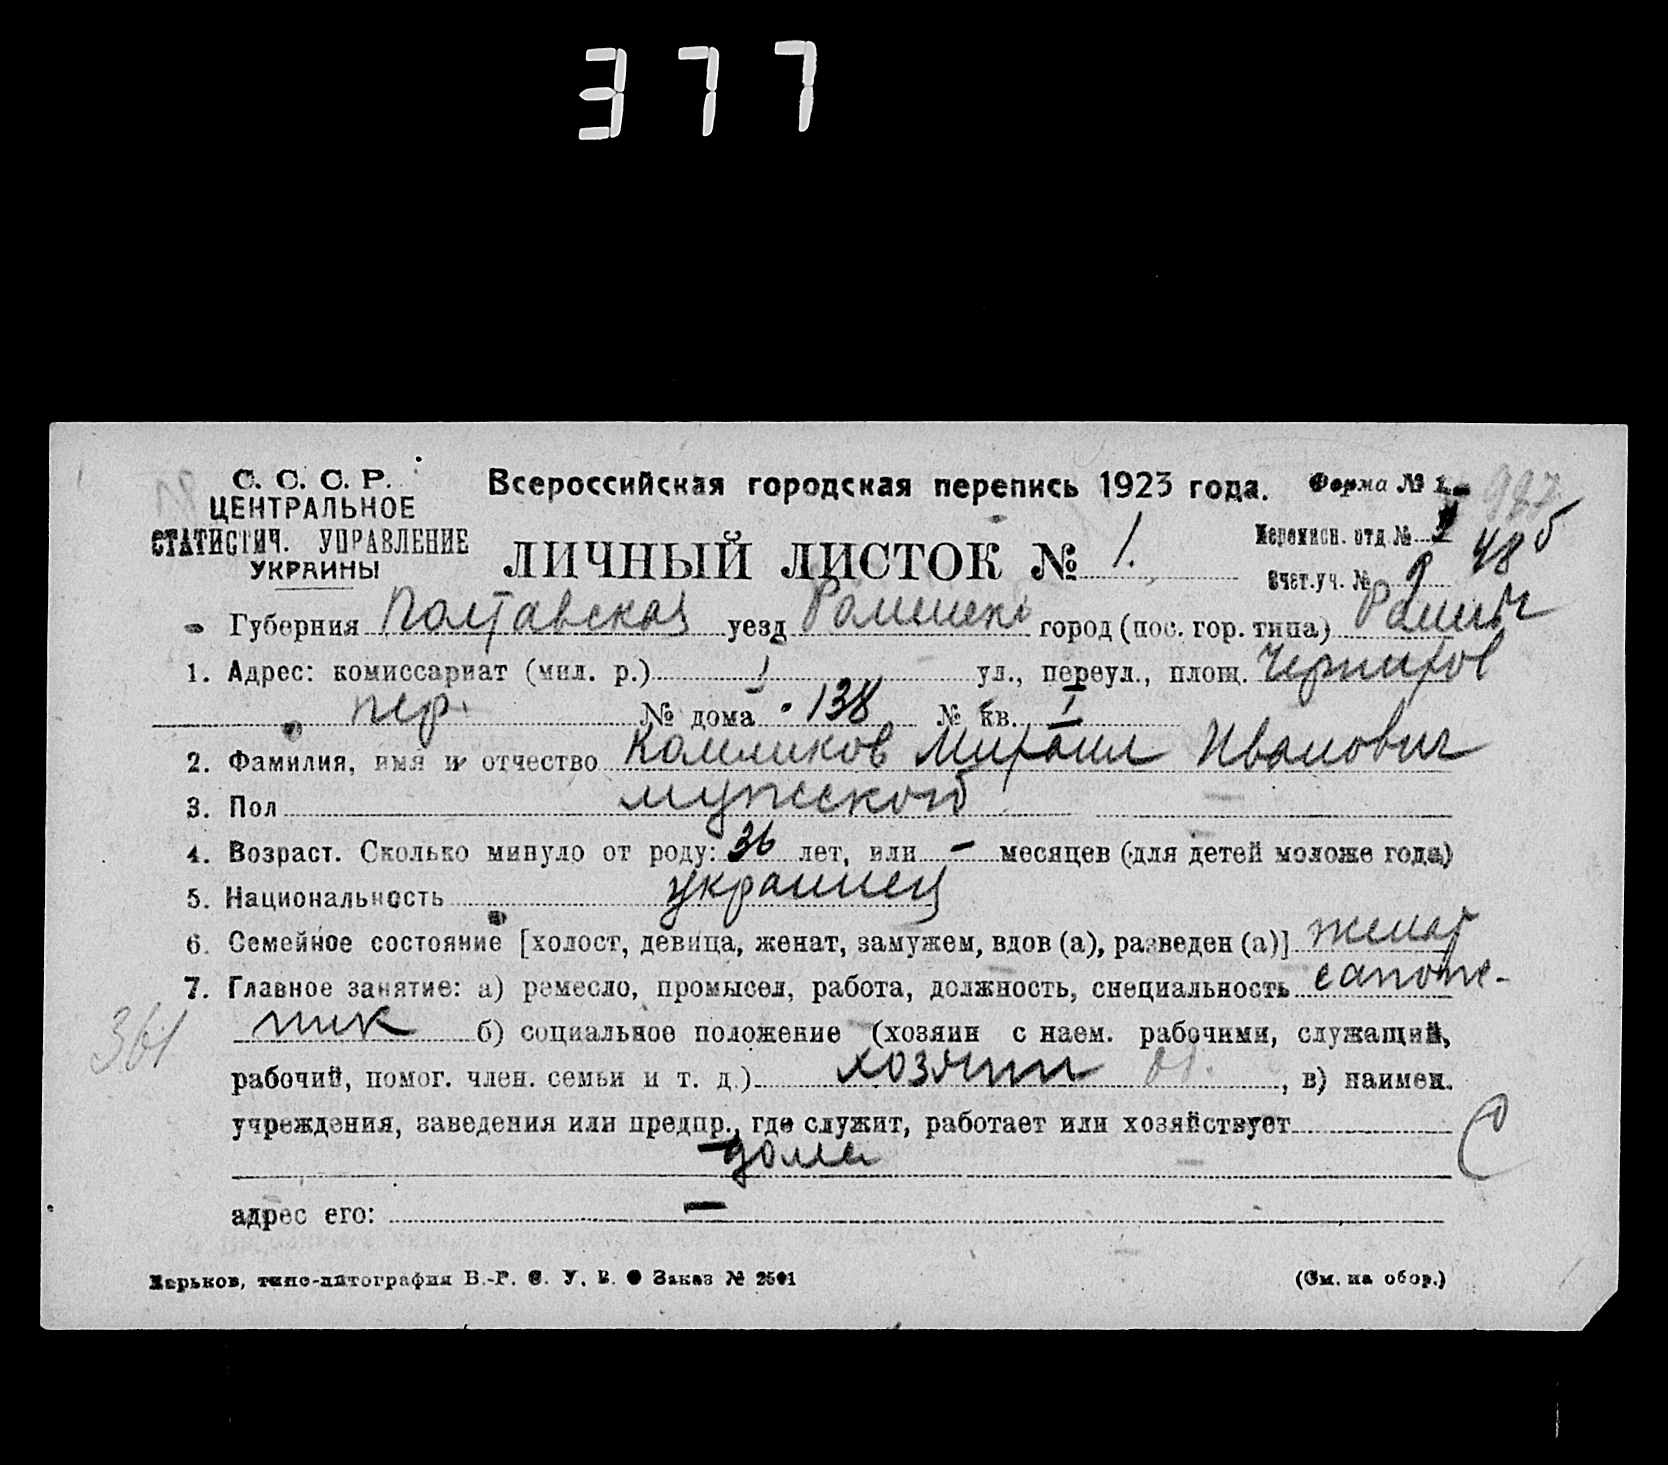 377
С. С. С. Р.
Всероссийская городская перепись 1923 года.
Форма № 1.
ЦЕНТРАЛЬНОЕ
СТАТИСТИЧ. УПРАВЛЕНИЕ
УКРАИНЫ
ЛИЧНЫЙ ЛИСТОК № 1.
Переписн. отд №
48 б
Счет.уч. № 9
Губерния Полтавская уезд Роменск город (пос. гор. типа) Ромны
1. Адрес: комиссариат (мил. р.) I ул., переул., площ. Чернигов
пер. № дома 138 № кв. I
2. Фамилия, имя и отчество Камликов Михаил Иванович
3. Пол мужской
4. Возраст. Сколько минуло от роду: 36 лет, или — месяцев (для детей моложе года)
5. Национальность украинец
6. Семейное состояние [холост, девица, женат, замужем, вдов (а), разведен (а)] женат
7. Главное занятие: а) ремесло, промысел, работа, должность, специальность сапож-
ник б) социальное положение (хозяин с наем. рабочими, служащий,
361
рабочий, помог. член. семьи и т. д.) хозяин , в) наимен.
учреждения, заведения или предпр., где служит, работает или хозяйствует
дома
адрес его: —
Харьков, типо-литография В.-Р. С. У. В. Заказ № 2501
(См. на обор.)